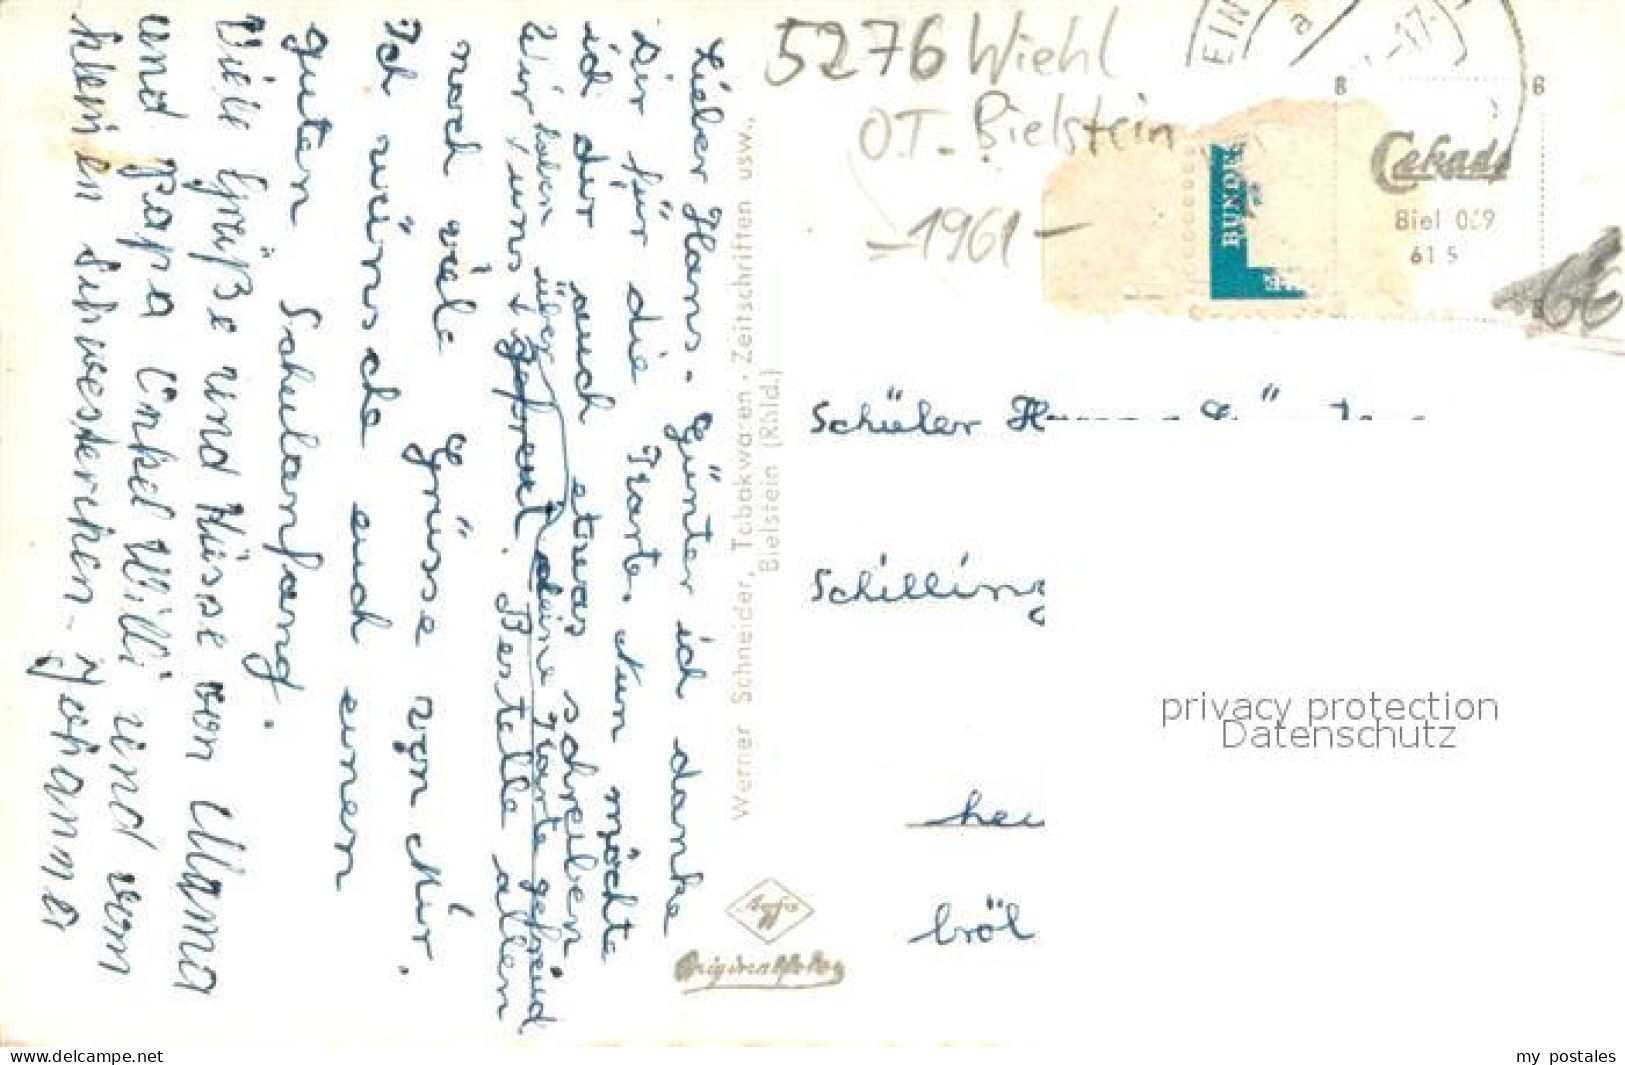 5276 Wiehl
O.T. Bielstein
-1961-
EIN
a
-17.
BUNDE
B
B
Cekade
Biel 069
61 5
Lieber Hans-Günter ich danke
Dir für die Karte. Nun möchte
ich dir auch etwas schreiben
Wir haben uns über deine Karte gefreud
uns gefreut. Bestelle allen
noch viele Grüsse von Mir.
Ich wünsche euch einen
guten Schulanfang.
Viele Grüße und Küsse von Mama
und Papa Onkel Willi und vom
kleinen Schwesterchen-Johanna
Werner Schneider, Tabakwaren - Zeitschriften usw.,
Bielstein (Rhld.)
Agfa
Originalfoto
Schüler
Schilling
bröl
privacy protection
Datenschutz
www.delcampe.net
my_postales